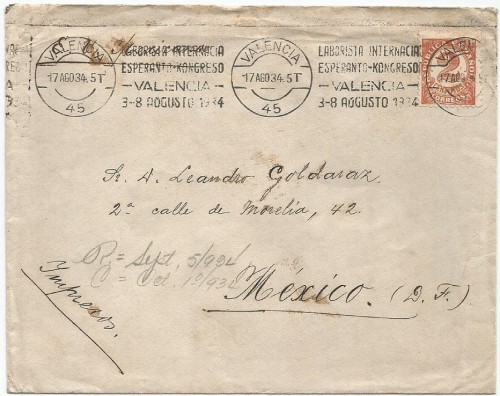 VALENCIA
17 AGO 34. 5T
45
LABORISTA INTERNACIA
ESPERANTO-KONGRESO
VALENCIA
3-8 AŬGUSTO 1934
VALENCIA
17 AGO 34. 5T
45
LABORISTA INTERNACIA
ESPERANTO-KONGRESO
VALENCIA
3-8 AŬGUSTO 1934
CORREOS
Sr. D. Leandro Goldaraz.
2ª calle de Morelia, 42.
R = Sept, 5/934
C = Oct.
Impresos.
México. (D. F.)